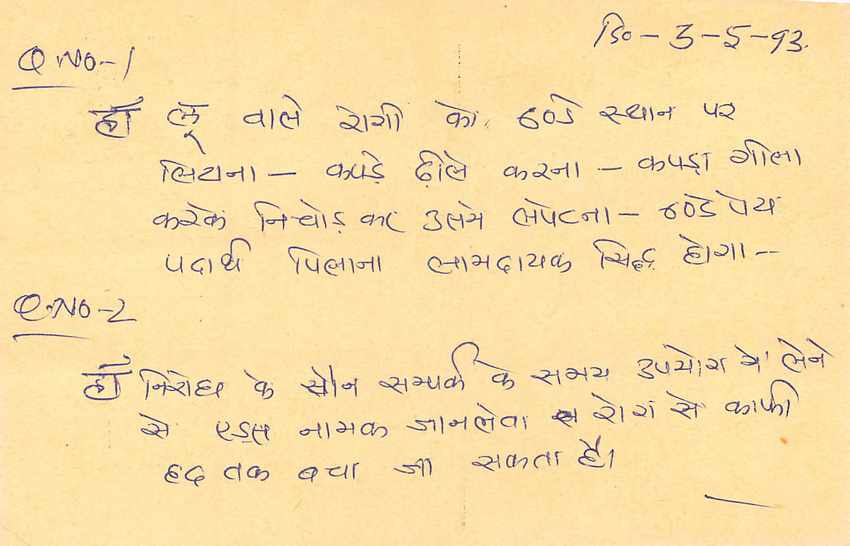 दि० - 3-5-93.
Q NO-1
हाँ लू वाले रोगी को ठण्डे स्थान पर
लिटाना - कपड़े ढीले करना - कपड़ा गीला
करके निचोड़ कर उसमें लपेटना - ठण्डे पेय
पदार्थ पिलाना लाभदायक सिद्ध होगा --
Q.NO-2
हाँ निरोध के यौन सम्पर्क के समय उपयोग मे लेने
से एड्स नामक जानलेवा रोग से काफी
हद तक बचा जा सकता है।